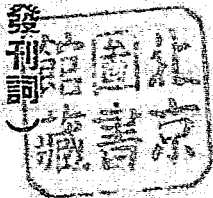 發刊詞）
北京
圖書
館藏